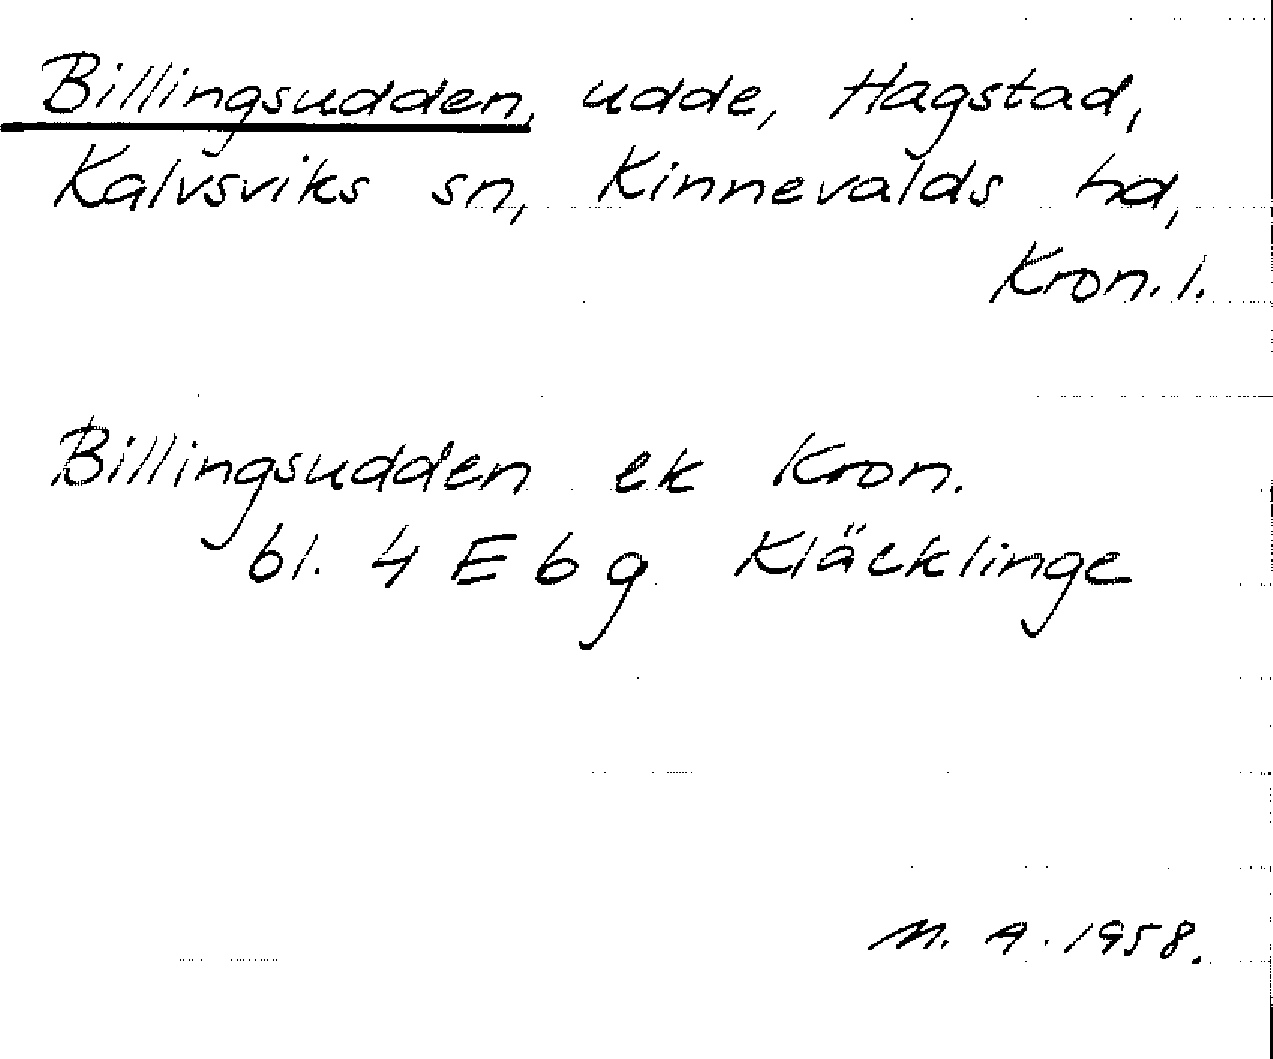 Billingsudden, udde, Hagstad,
Kalvsviks sn, Kinnevalds hd,
Kron. l.
Billingsudden ek Kron.
bl. 4 E b g Kläcklinge
M. A. 1958.